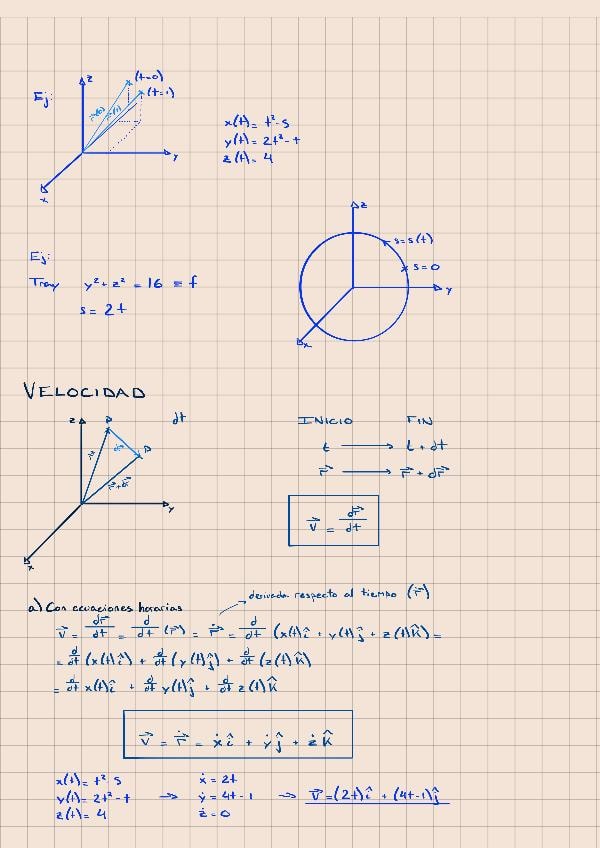 z
(t=0)
Ej:
(t=1)
r(0) r(1)
y
x
x(t) = t² - s
y(t) = 2t² - t
z(t) = 4
z
s = s(t)
s = 0
y
x
Ej:
Tray y² + z² = 16 ≡ f
s = 2t
VELOCIDAD
z P dt
dr⃗
P
r⃗
r⃗+dr⃗
y
x
INICIO FIN
t ⟶ t + dt
r⃗ ⟶ r⃗ + dr⃗
v⃗ = dr⃗/dt
derivada respecto al tiempo (ṙ⃗)
a) Con ecuaciones horarias
v⃗ = dr⃗/dt = d/dt (r⃗) = ṙ⃗ = d/dt (x(t)î + y(t)ĵ + z(t)k̂) =
= d/dt (x(t)î) + d/dt (y(t)ĵ) + d/dt (z(t)k̂)
= d/dt x(t)î + d/dt y(t)ĵ + d/dt z(t)k̂
v⃗ = ṙ⃗ = ẋ î + ẏ ĵ + ż k̂
x(t) = t² - s ẋ = 2t
y(t) = 2t² - t ⟶ ẏ = 4t - 1 ⟶ v⃗ = (2t)î + (4t-1)ĵ
z(t) = 4 ż = 0